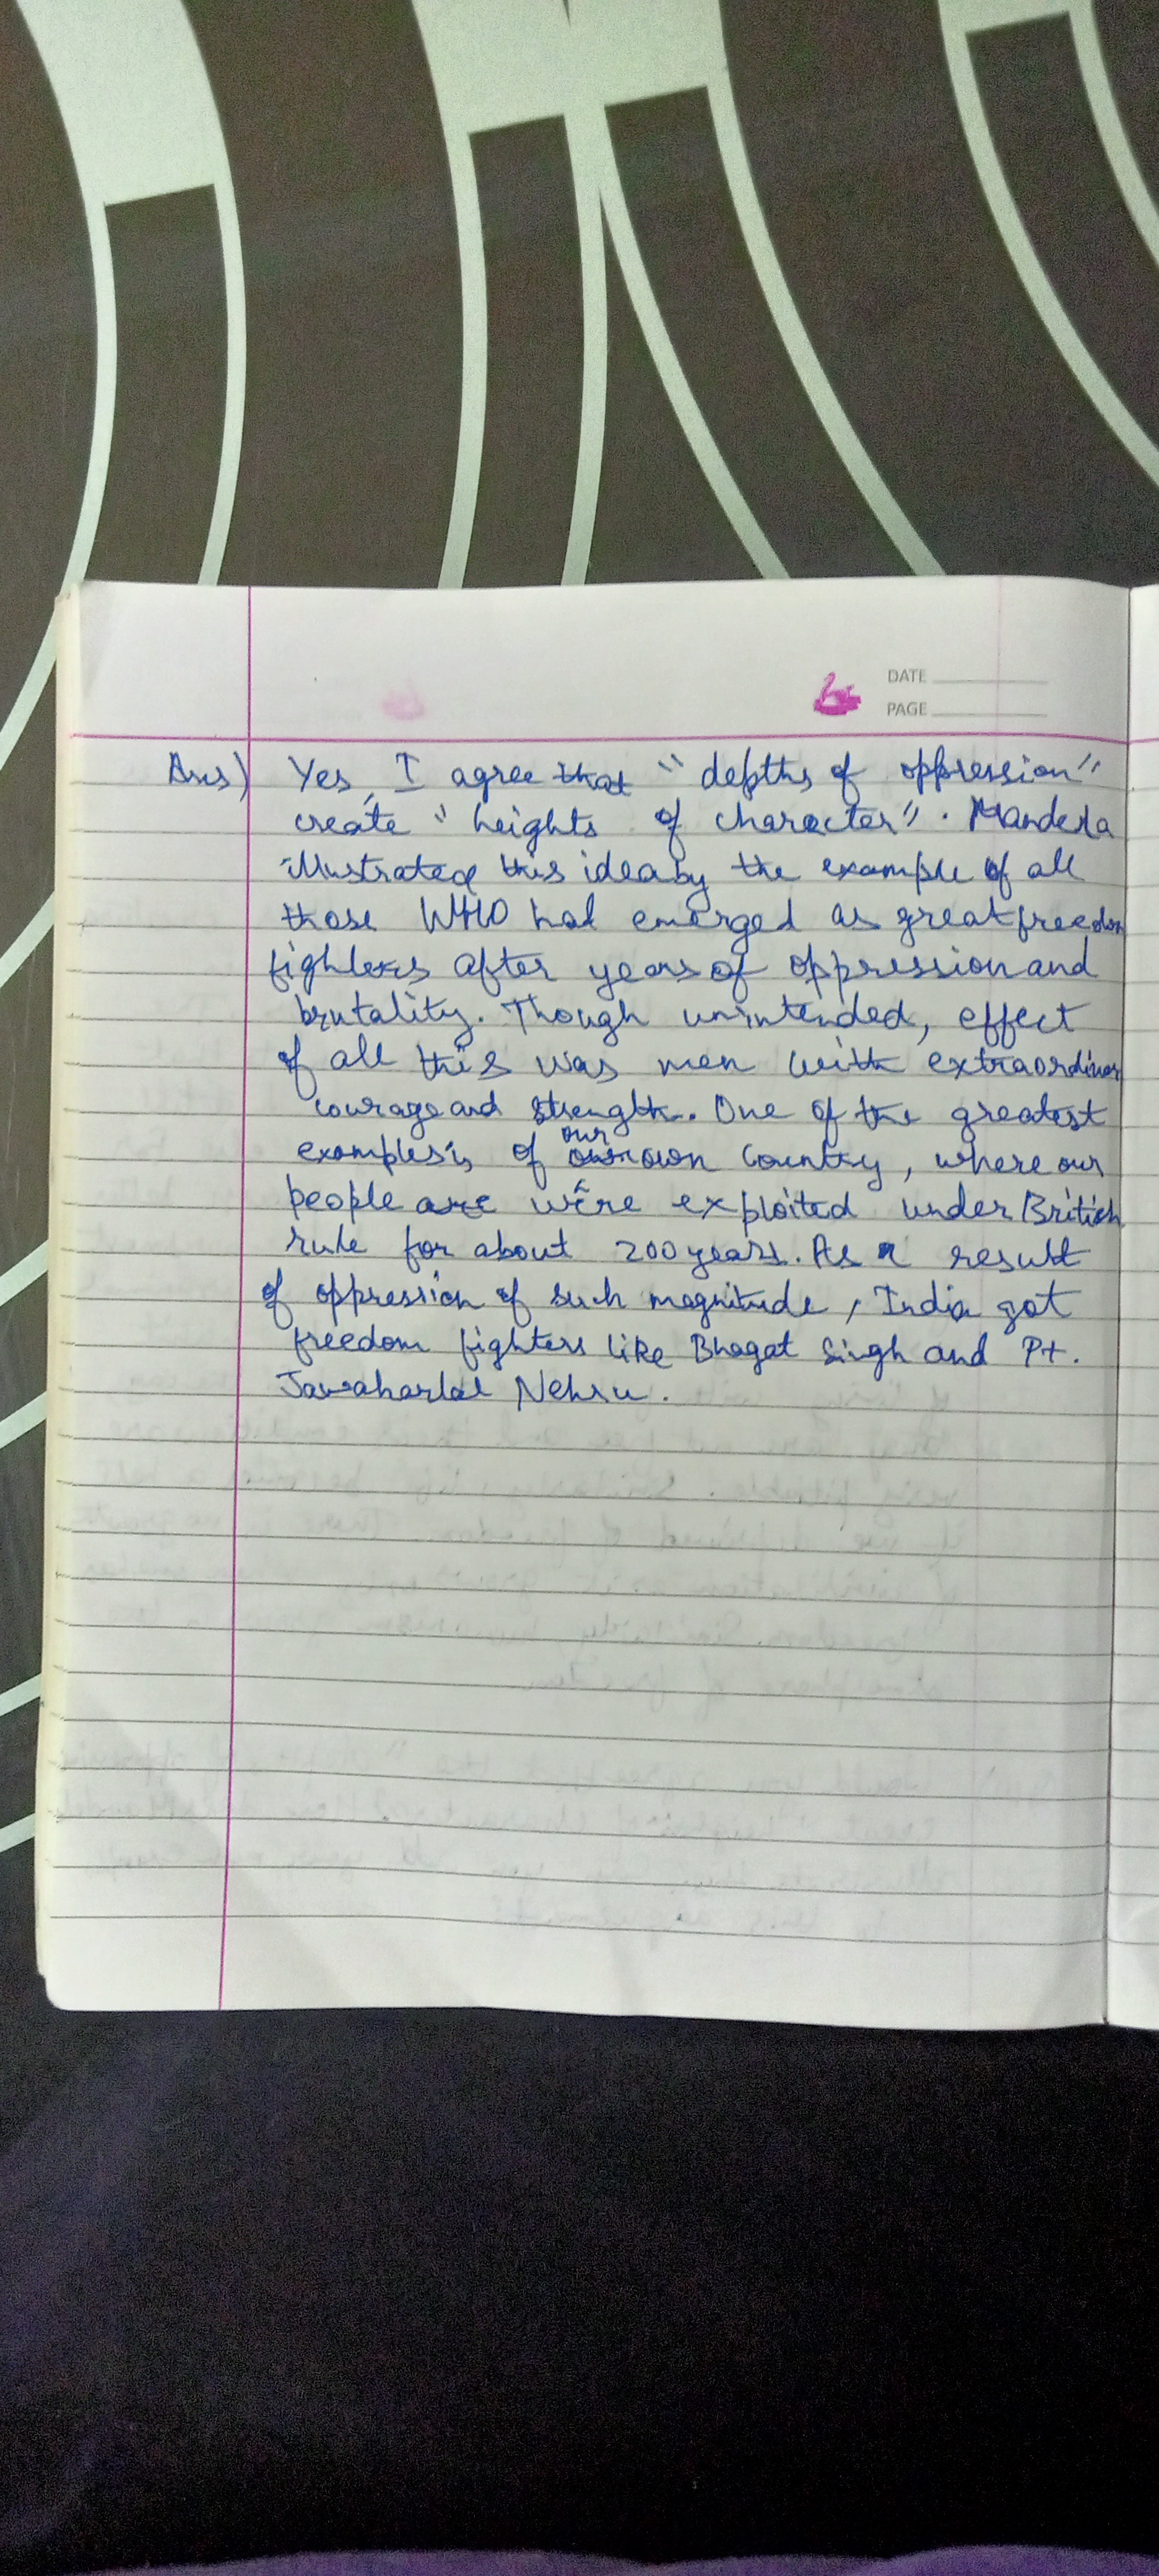 DATE
PAGE
Ans) Yes, I agree that "depths of oppression"
create "heights of character". Mandela
illustrated this idea by the example of all
those WHO had emerged as great freedom
fighters after years of oppression and
brutality. Though unintended, effect
of all this was men with extraordinary
courage and strength. One of the greatest
examples is of our own country, where our
people are were exploited under British
rule for about 200 years. As a result
of oppression of such magnitude, India got
freedom fighters like Bhagat Singh and Pt.
Jawaharlal Nehru.